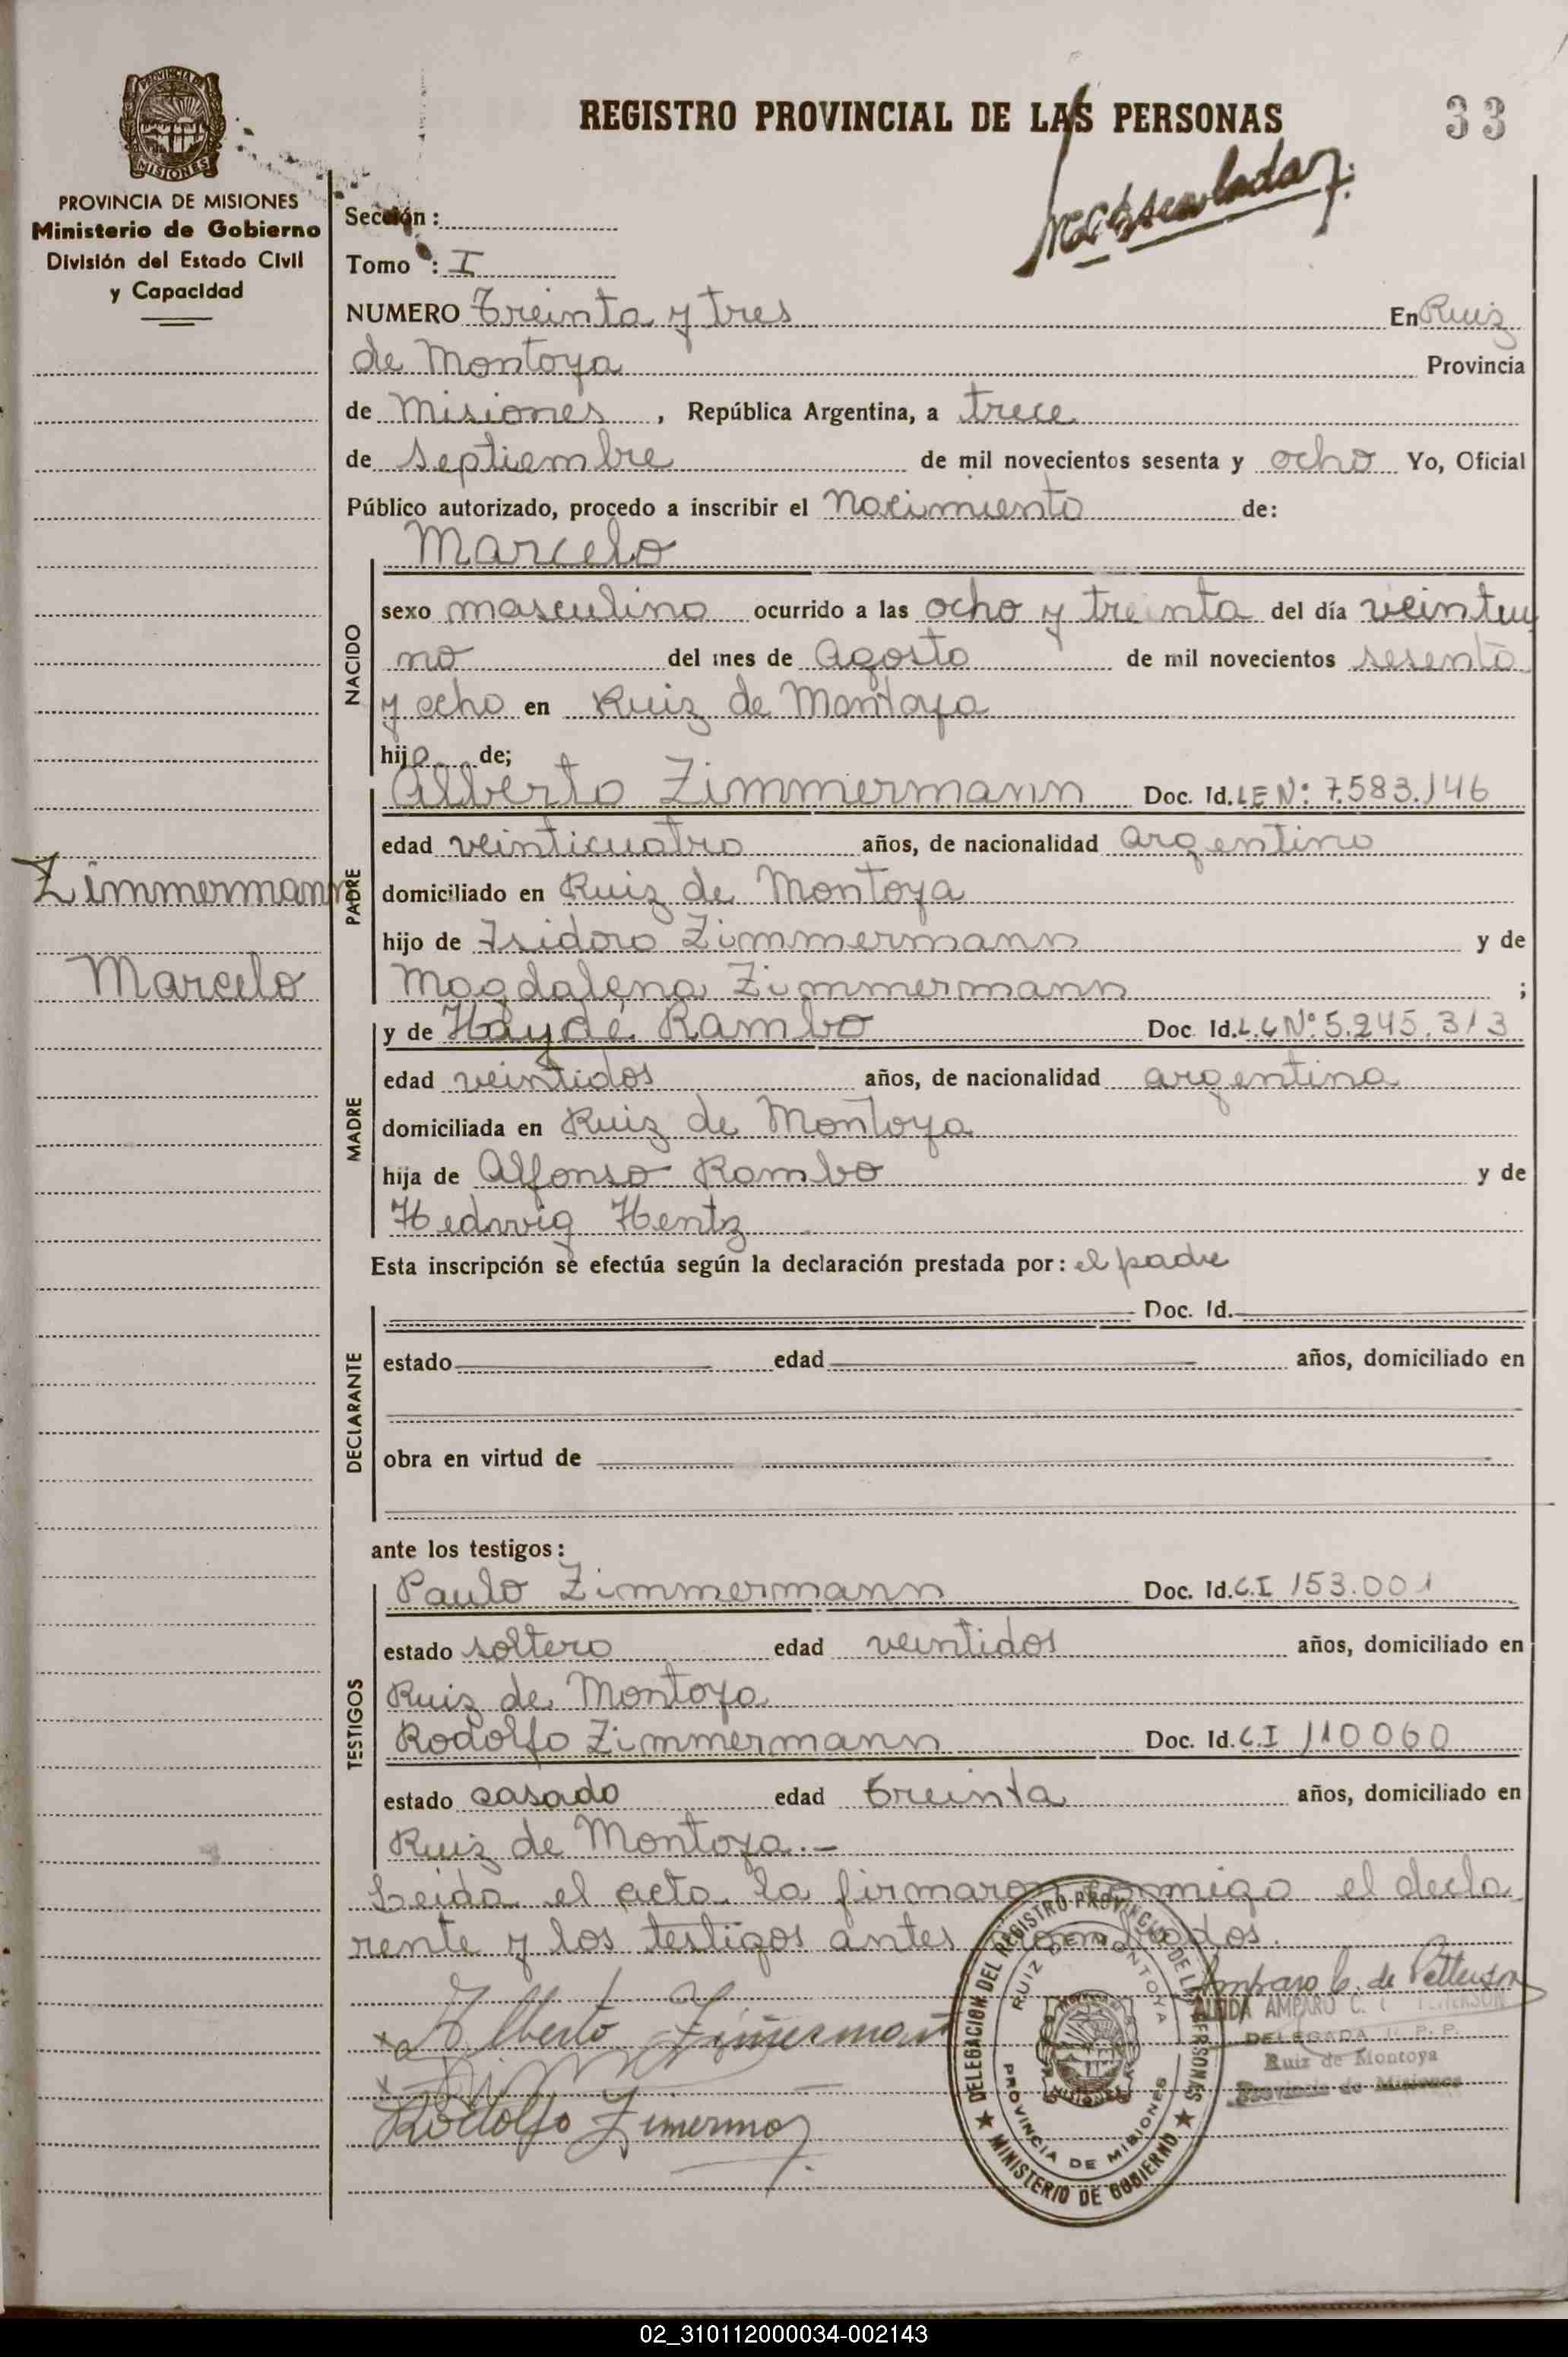 REGISTRO PROVINCIAL DE LAS PERSONAS
33
PROVINCIA DE
MISIONES
PROVINCIA DE MISIONES
Ministerio de Gobierno
División del Estado Civil
y Capacidad
Sección :
Tomo : I
NUMERO Treinta y tres En Ruiz
de Montoya Provincia
de Misiones, República Argentina, a trece
de septiembre de mil novecientos sesenta y ocho Yo, Oficial
Público autorizado, procedo a inscribir el Nacimiento de:
Marcelo
NACIDO
sexo masculino ocurrido a las ocho y treinta del día veintiu
no del mes de Agosto de mil novecientos sesenta
y ocho en Ruiz de Montoya
hijo de;
Alberto Zimmermann Doc. Id. LE Nº 7.583.146
PADRE
edad veinticuatro años, de nacionalidad argentino
domiciliado en Ruiz de Montoya
hijo de Isidoro Zimmermann y de
Magdalena Zimmermann ;
Zimmermann
Marcelo
y de Haydé Rambo Doc. Id. L.C Nº 5.245.313
MADRE
edad veintidos años, de nacionalidad argentina
domiciliada en Ruiz de Montoya
hija de Alfonso Rambo y de
Hedwig Hentz
Esta inscripción se efectúa según la declaración prestada por: el padre
DECLARANTE
Doc. Id.
estado edad años, domiciliado en
obra en virtud de
ante los testigos:
TESTIGOS
Paulo Zimmermann Doc. Id. C.I 153.001
estado soltero edad veintidos años, domiciliado en
Ruiz de Montoya
Rodolfo Zimmermann Doc. Id. C.I 110060
estado casado edad treinta años, domiciliado en
Ruiz de Montoya.-
Leida el acta la firmaron conmigo el decla
rente y los testigos antes nombrados.
Alberto Zimerman
Rodolfo Zimerman
Amparo C. de Petterson
AMPARO C.
DELEGADA R. P. P.
Ruiz de Montoya
Provincia de Misiones
DELEGACION DEL REGISTRO PROVINCIAL DE LAS PERSONAS
RUIZ DE MONTOYA
PROVINCIA DE MISIONES
MISIONES
★ MINISTERIO DE GOBIERNO ★
02_310112000034-002143